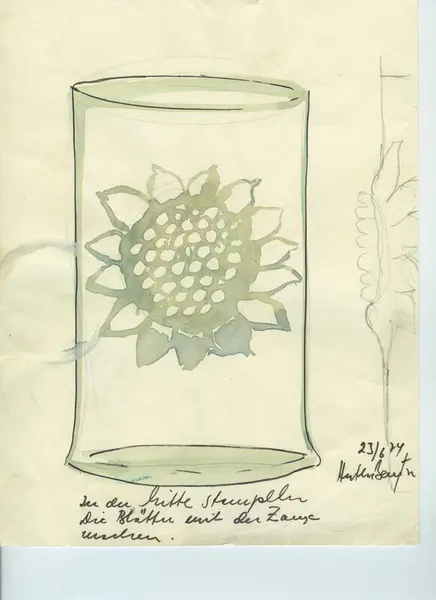 23/6 74
In der Mitte stempeln
Die Blätter mit der Zange
machen.